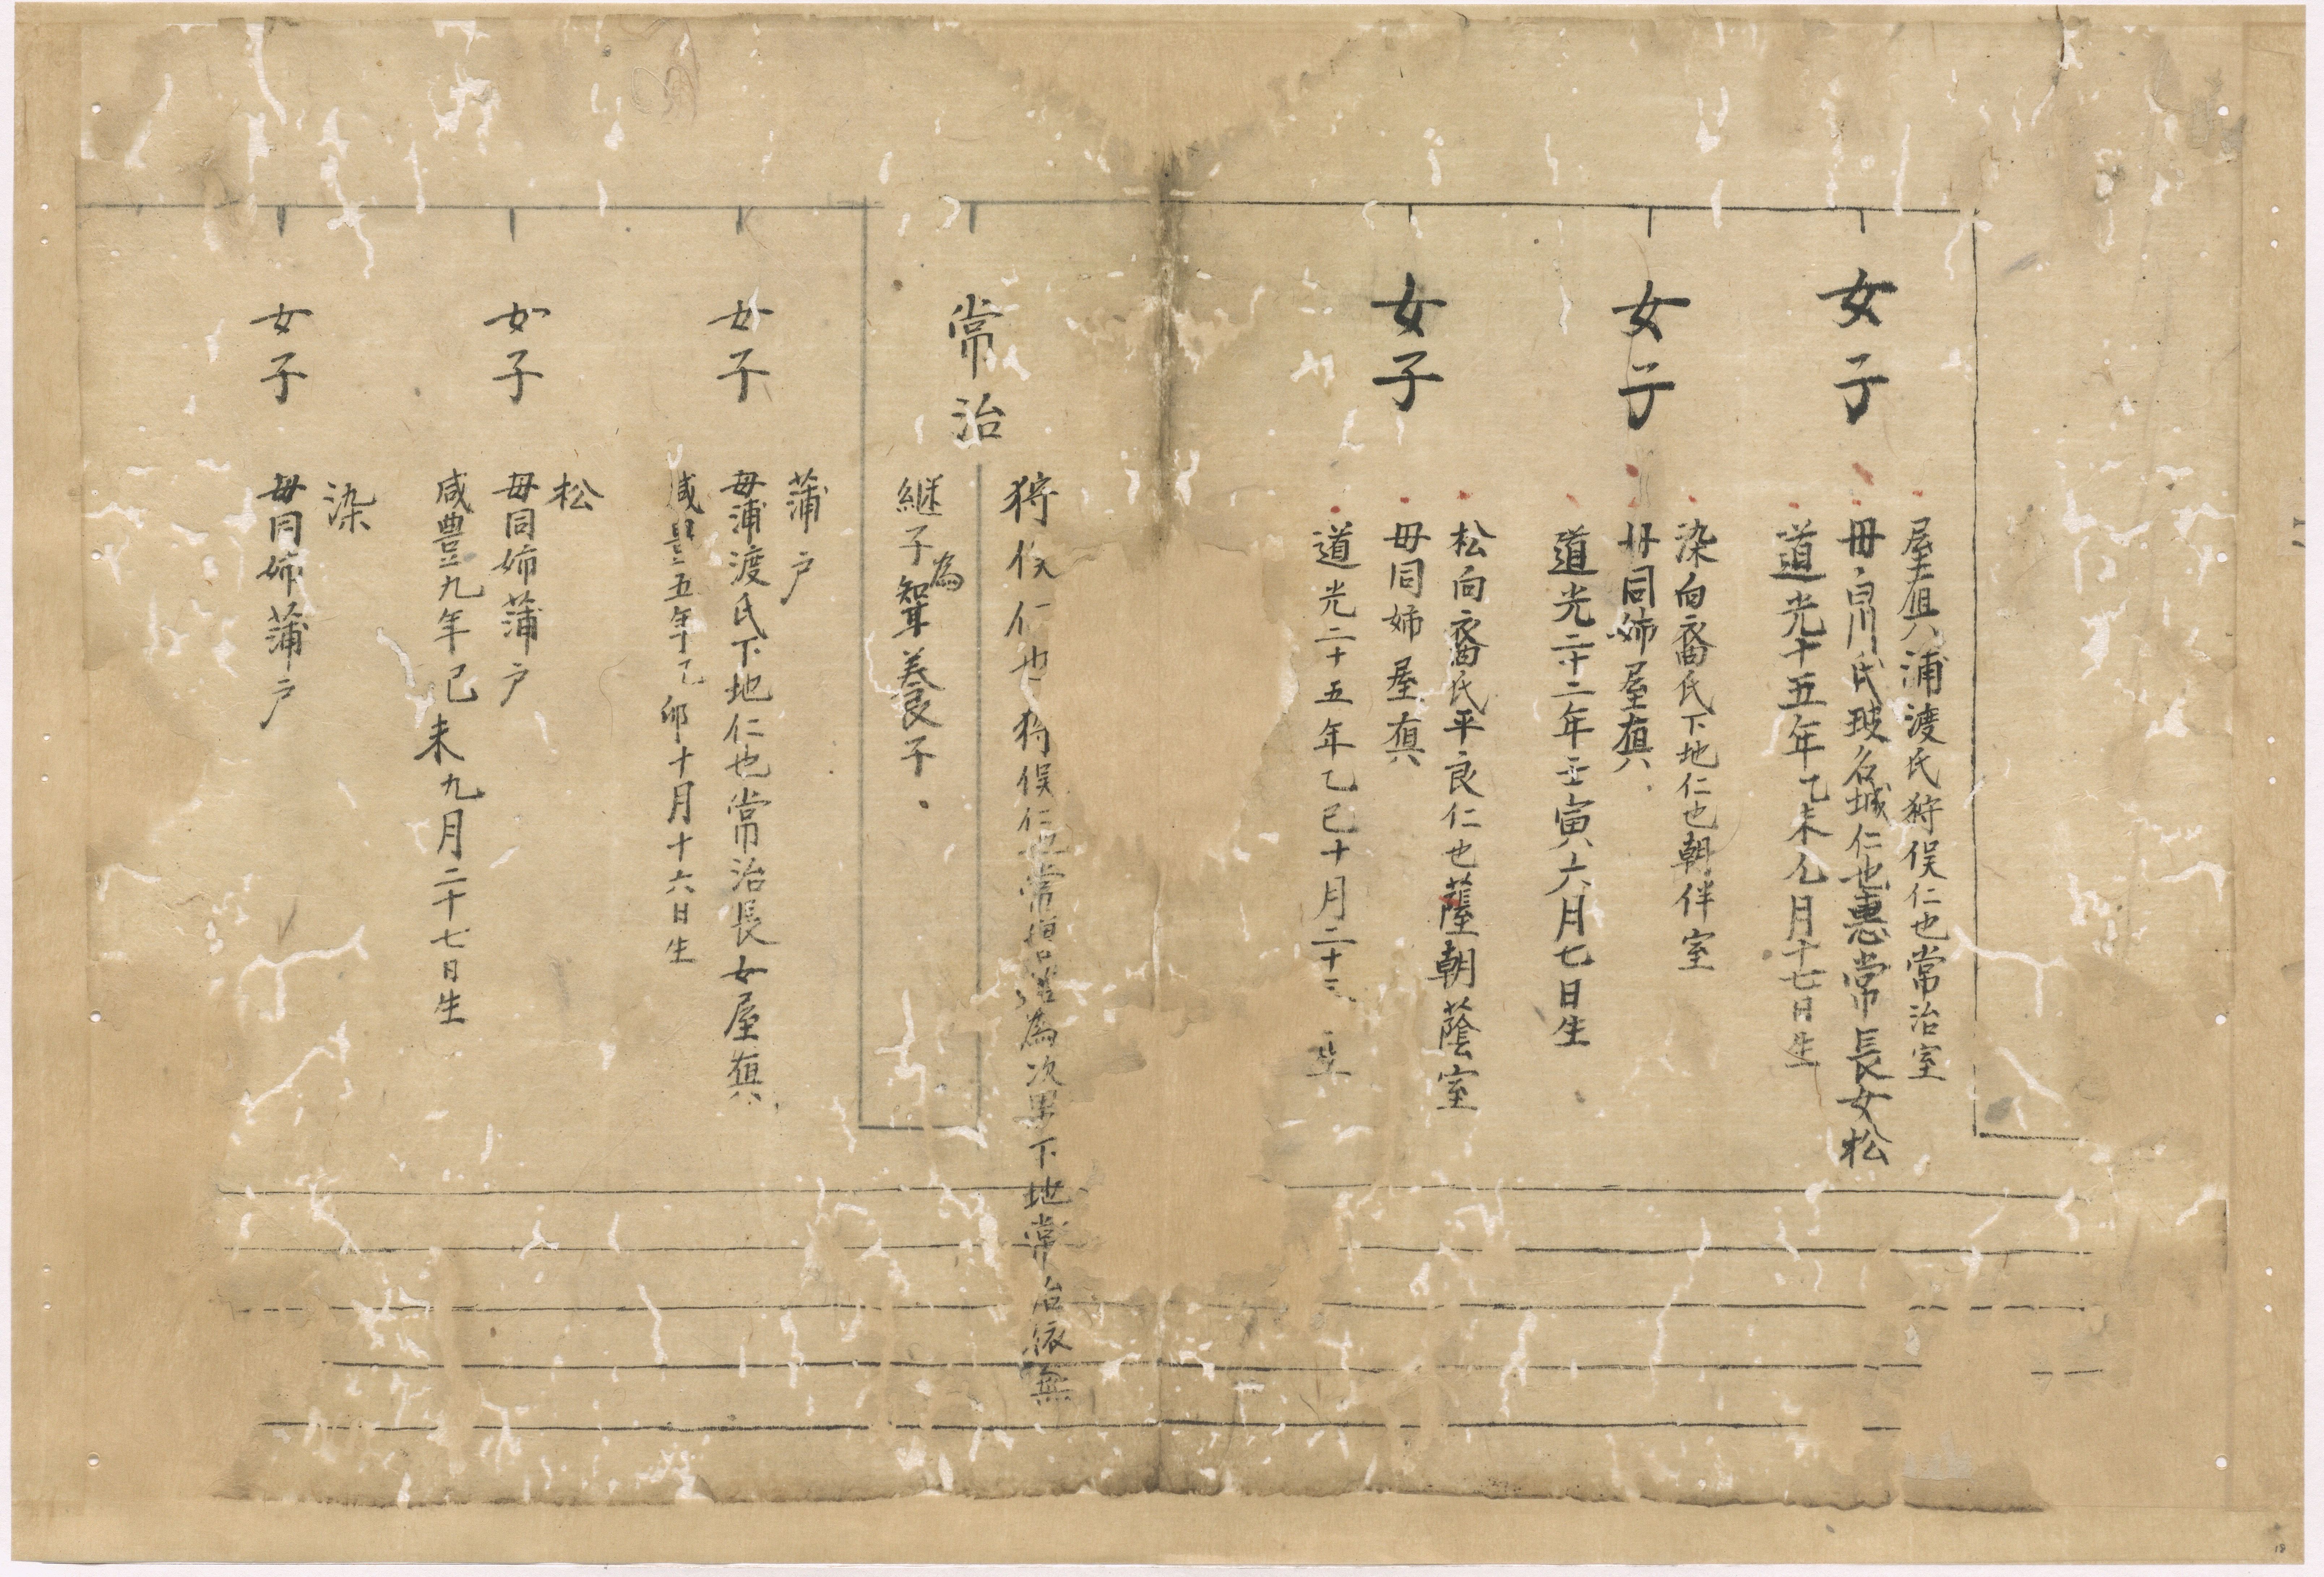 女子
屋真 浦渡氏狩俣仁也常治室
毋白川氏玻名城仁也惠常長女松
道光十五年乙未 月十七日生
女子
染 向裔氏下地仁也朝伴室
毋同姉屋真
道光二十二年壬寅六月七日生
女子
松 向裔氏平良仁也 朝蔭室
毋同姉屋真
道光二十五年乙巳十月二十 生
常治
狩俣仁也 狩俣仁也常 為次男下地常治依無
継子為聟養子
女子
蒲戸
毋蒲渡氏下地仁也常治長女屋真
咸豊五年乙卯十月十六日生
女子
松
毋同姉蒲戸
咸豊九年己未九月二十七日生
女子
染
毋同姉蒲戸
18